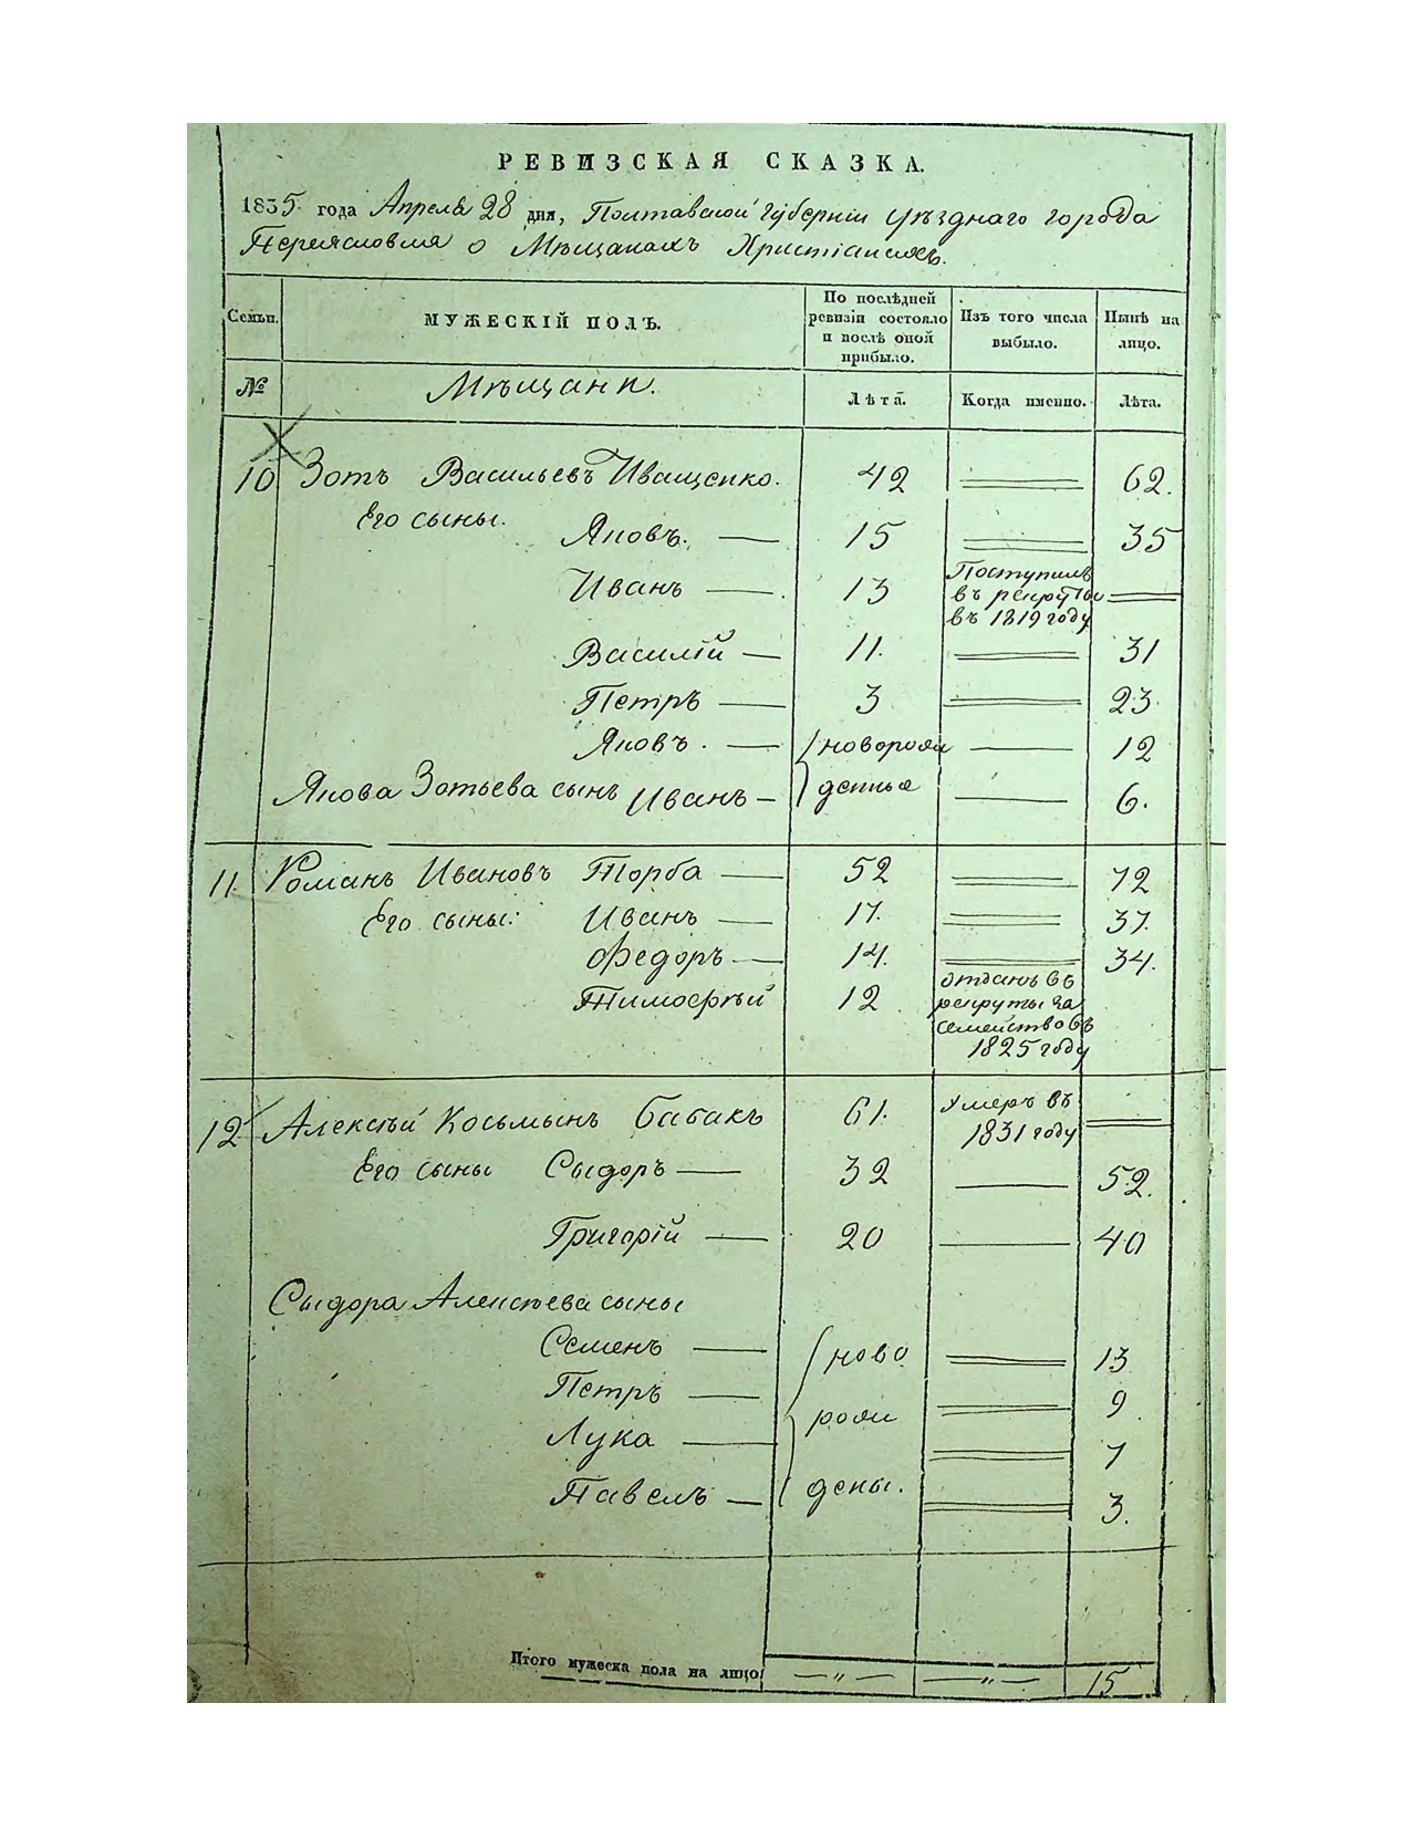 РЕВИЗСКАЯ СКАЗКА.
1835 года Апреля 28 дня, Полтавской Губернии уѣзднаго города
Переяславля о Мѣщанахъ Христіанахъ.
Семьи. МУЖЕСКІЙ ПОЛЪ. По послѣдней ревизіи состояло и послѣ оной прибыло. Изъ того числа выбыло. Нынѣ на лицо.
№ Мѣщани. Лѣта. Когда именно. Лѣта.
10 Зотъ Васильевъ Иващенко. 42 62.
Его сыны. Яковъ. 15 35
Иванъ 13 Поступилъ въ рекруты въ 1819 году
Василій 11. 31
Петръ 3 23
Яковъ. новорож 12
Якова Зотьева сынъ Иванъ денные 6.
11. Романъ Ивановъ Торба 52 72
Его сыны: Иванъ 17. 37.
Федоръ 14. 34.
Тимофѣй 12 отданъ въ рекруты за семейство въ 1825 году
12 Алексѣй Косьминъ Бабакъ 61. Умеръ въ 1831 году
Его сыны Сыдоръ 32 52.
Григорій 20 40
Сыдора Алексѣева сыны
Семенъ ново 13
Петръ рож 9
Лука 7
Павелъ дены. 3.
Итого мужеска пола на лицо — " — — " — 15